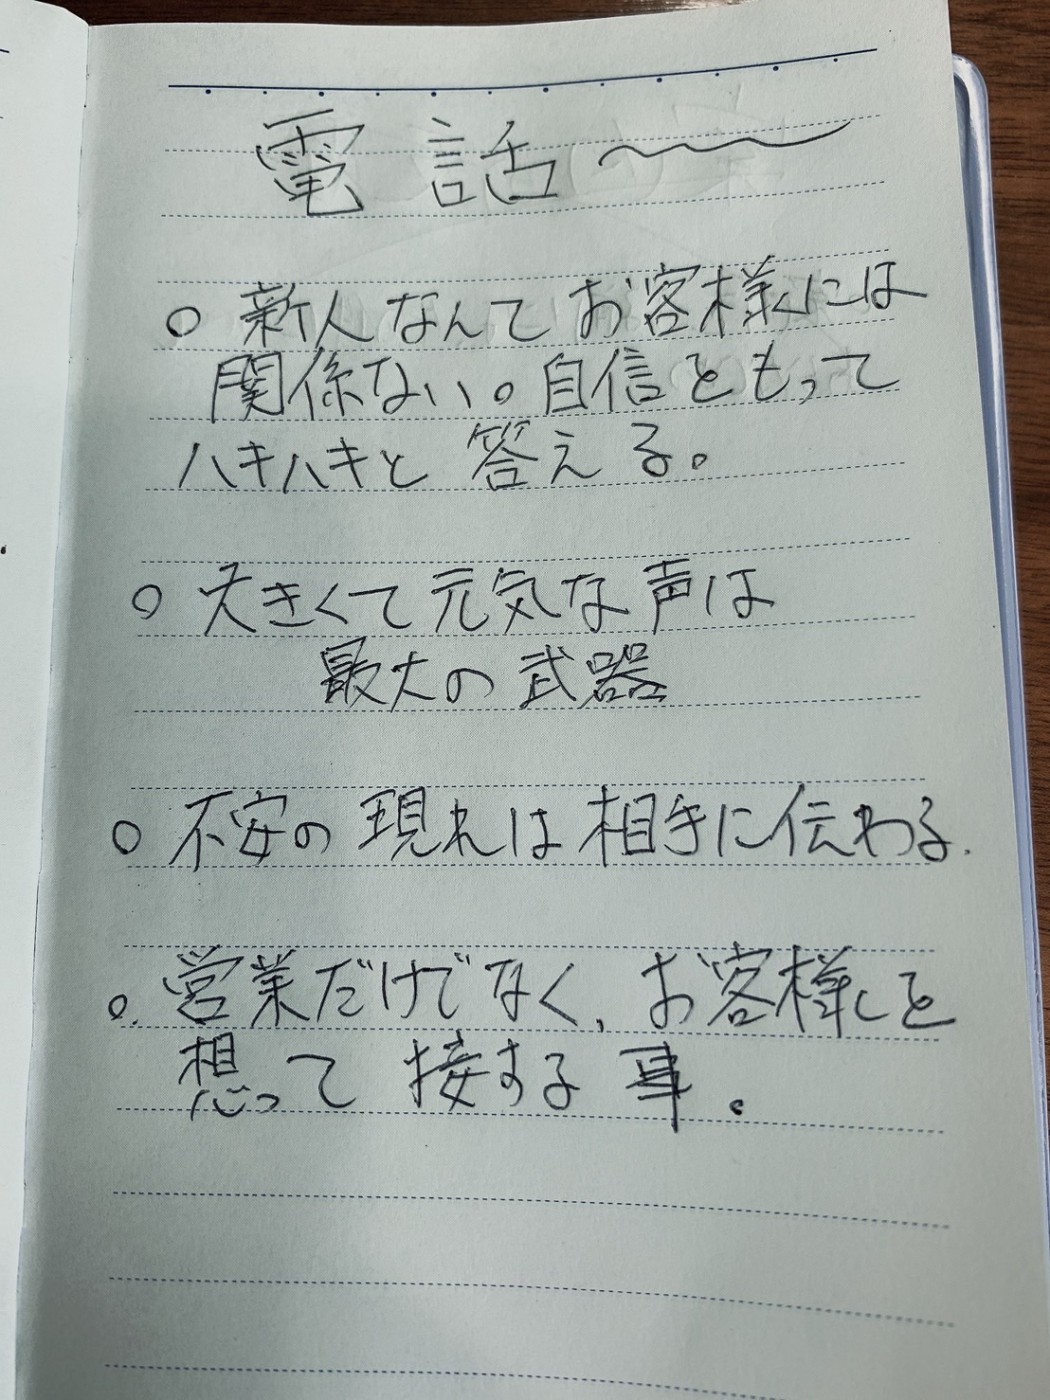 電話〜
○ 新人なんてお客様には
関係ない。自信をもって
ハキハキと 答える。
○ 大きくて元気な声は
最大の武器
○ 不安の現れは相手に伝わる.
○. 営業だけでなく、お客様を
想って 接する事。